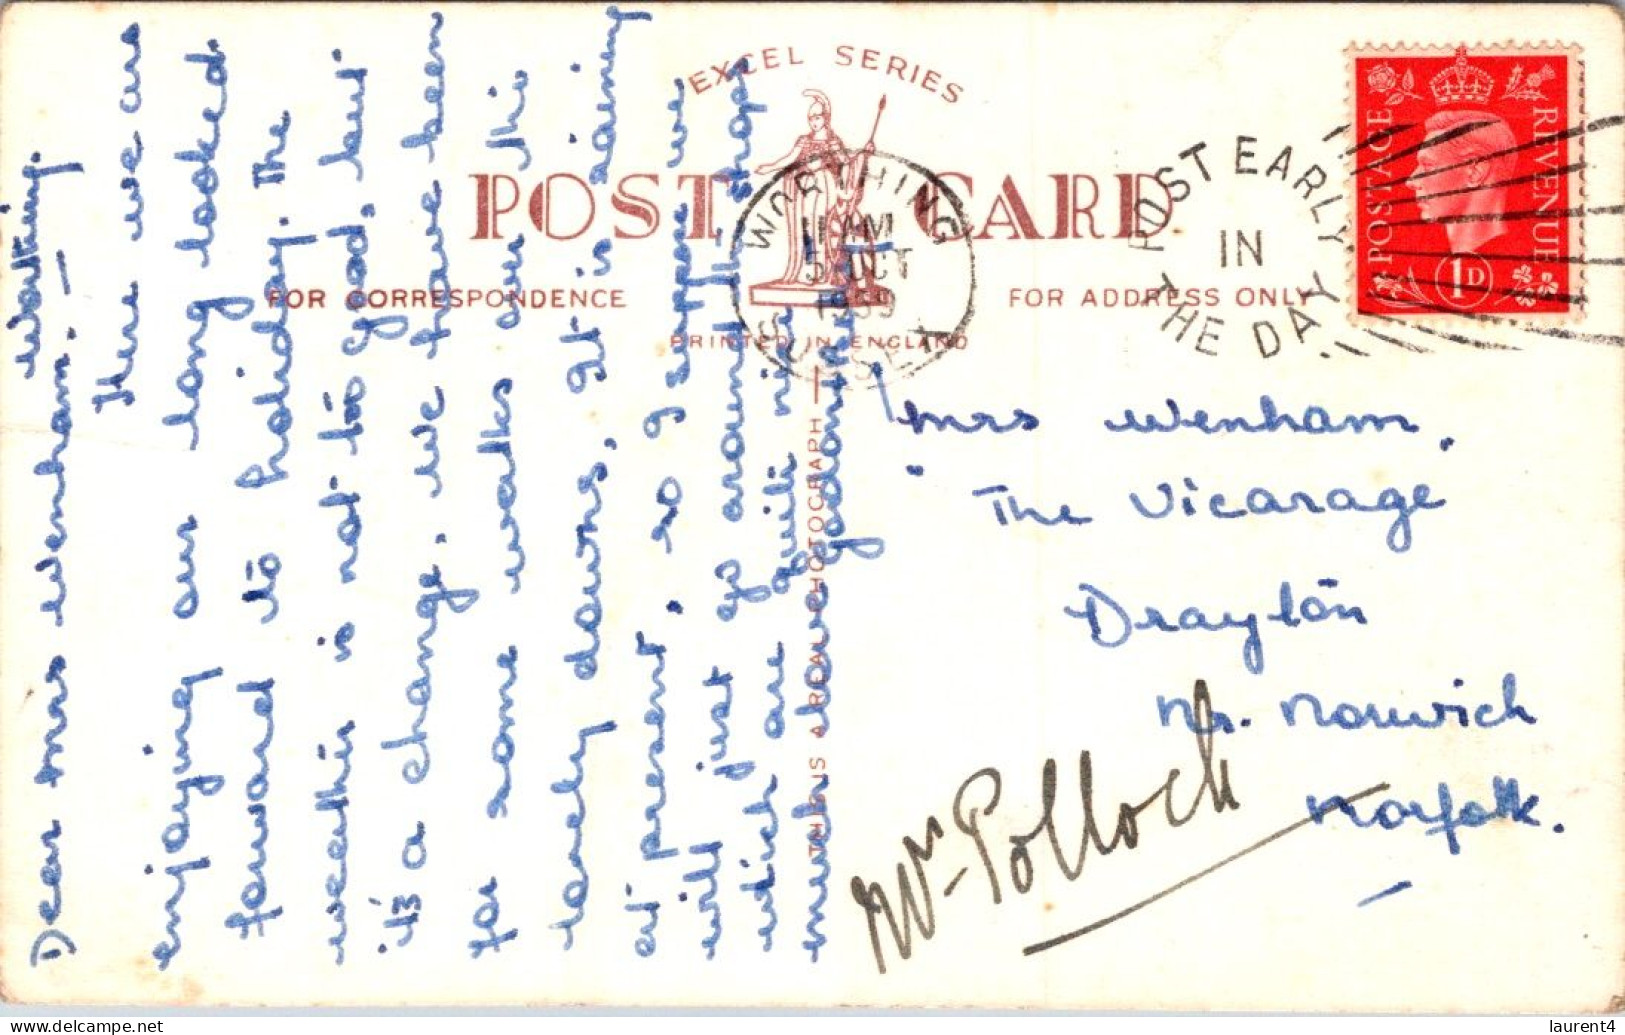 EXCEL SERIES
POST CARD
FOR CORRESPONDENCE
FOR ADDRESS ONLY
PRINTED IN ENGLAND
THIS IS A REAL PHOTOGRAPH
WORTHING
11 AM
5 OCT
1939
SUSSEX
POST EARLY
IN
THE DAY
POSTAGE
REVENUE
1D
Worthing.
Dear Mrs Wenham. —
Here we are
enjoying our long looked
forward to holiday. The
weather is not too good, but
its a change. We have been
for some walks over the
lovely downs, It is raining
at present, so I suppose we
will just go around the shops
which are quite nice
much above
Mrs Wenham.
The Vicarage
Drayton
Nr. Norwich
Norfolk.
Mr. Pollock
laurent4